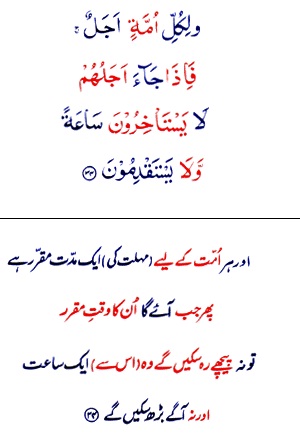 وَلِكُلِّ اُمَّةٍ اَجَلٌ ۚ
فَاِذَا جَآءَ اَجَلُهُمْ
لَا يَسْتَاْخِرُوْنَ سَاعَةً
وَّلَا يَسْتَقْدِمُوْنَ ﴿۳۴﴾
اور ہر اُمّت کے لیے (مہلت کی) ایک مدّت مقرّر ہے
پھر جب آئے گا اُن کا وقتِ مقرر
تو نہ پیچھے رہ سکیں گے وہ (اس سے) ایک ساعت
اور نہ آگے بڑھ سکیں گے ﴿۳۴﴾